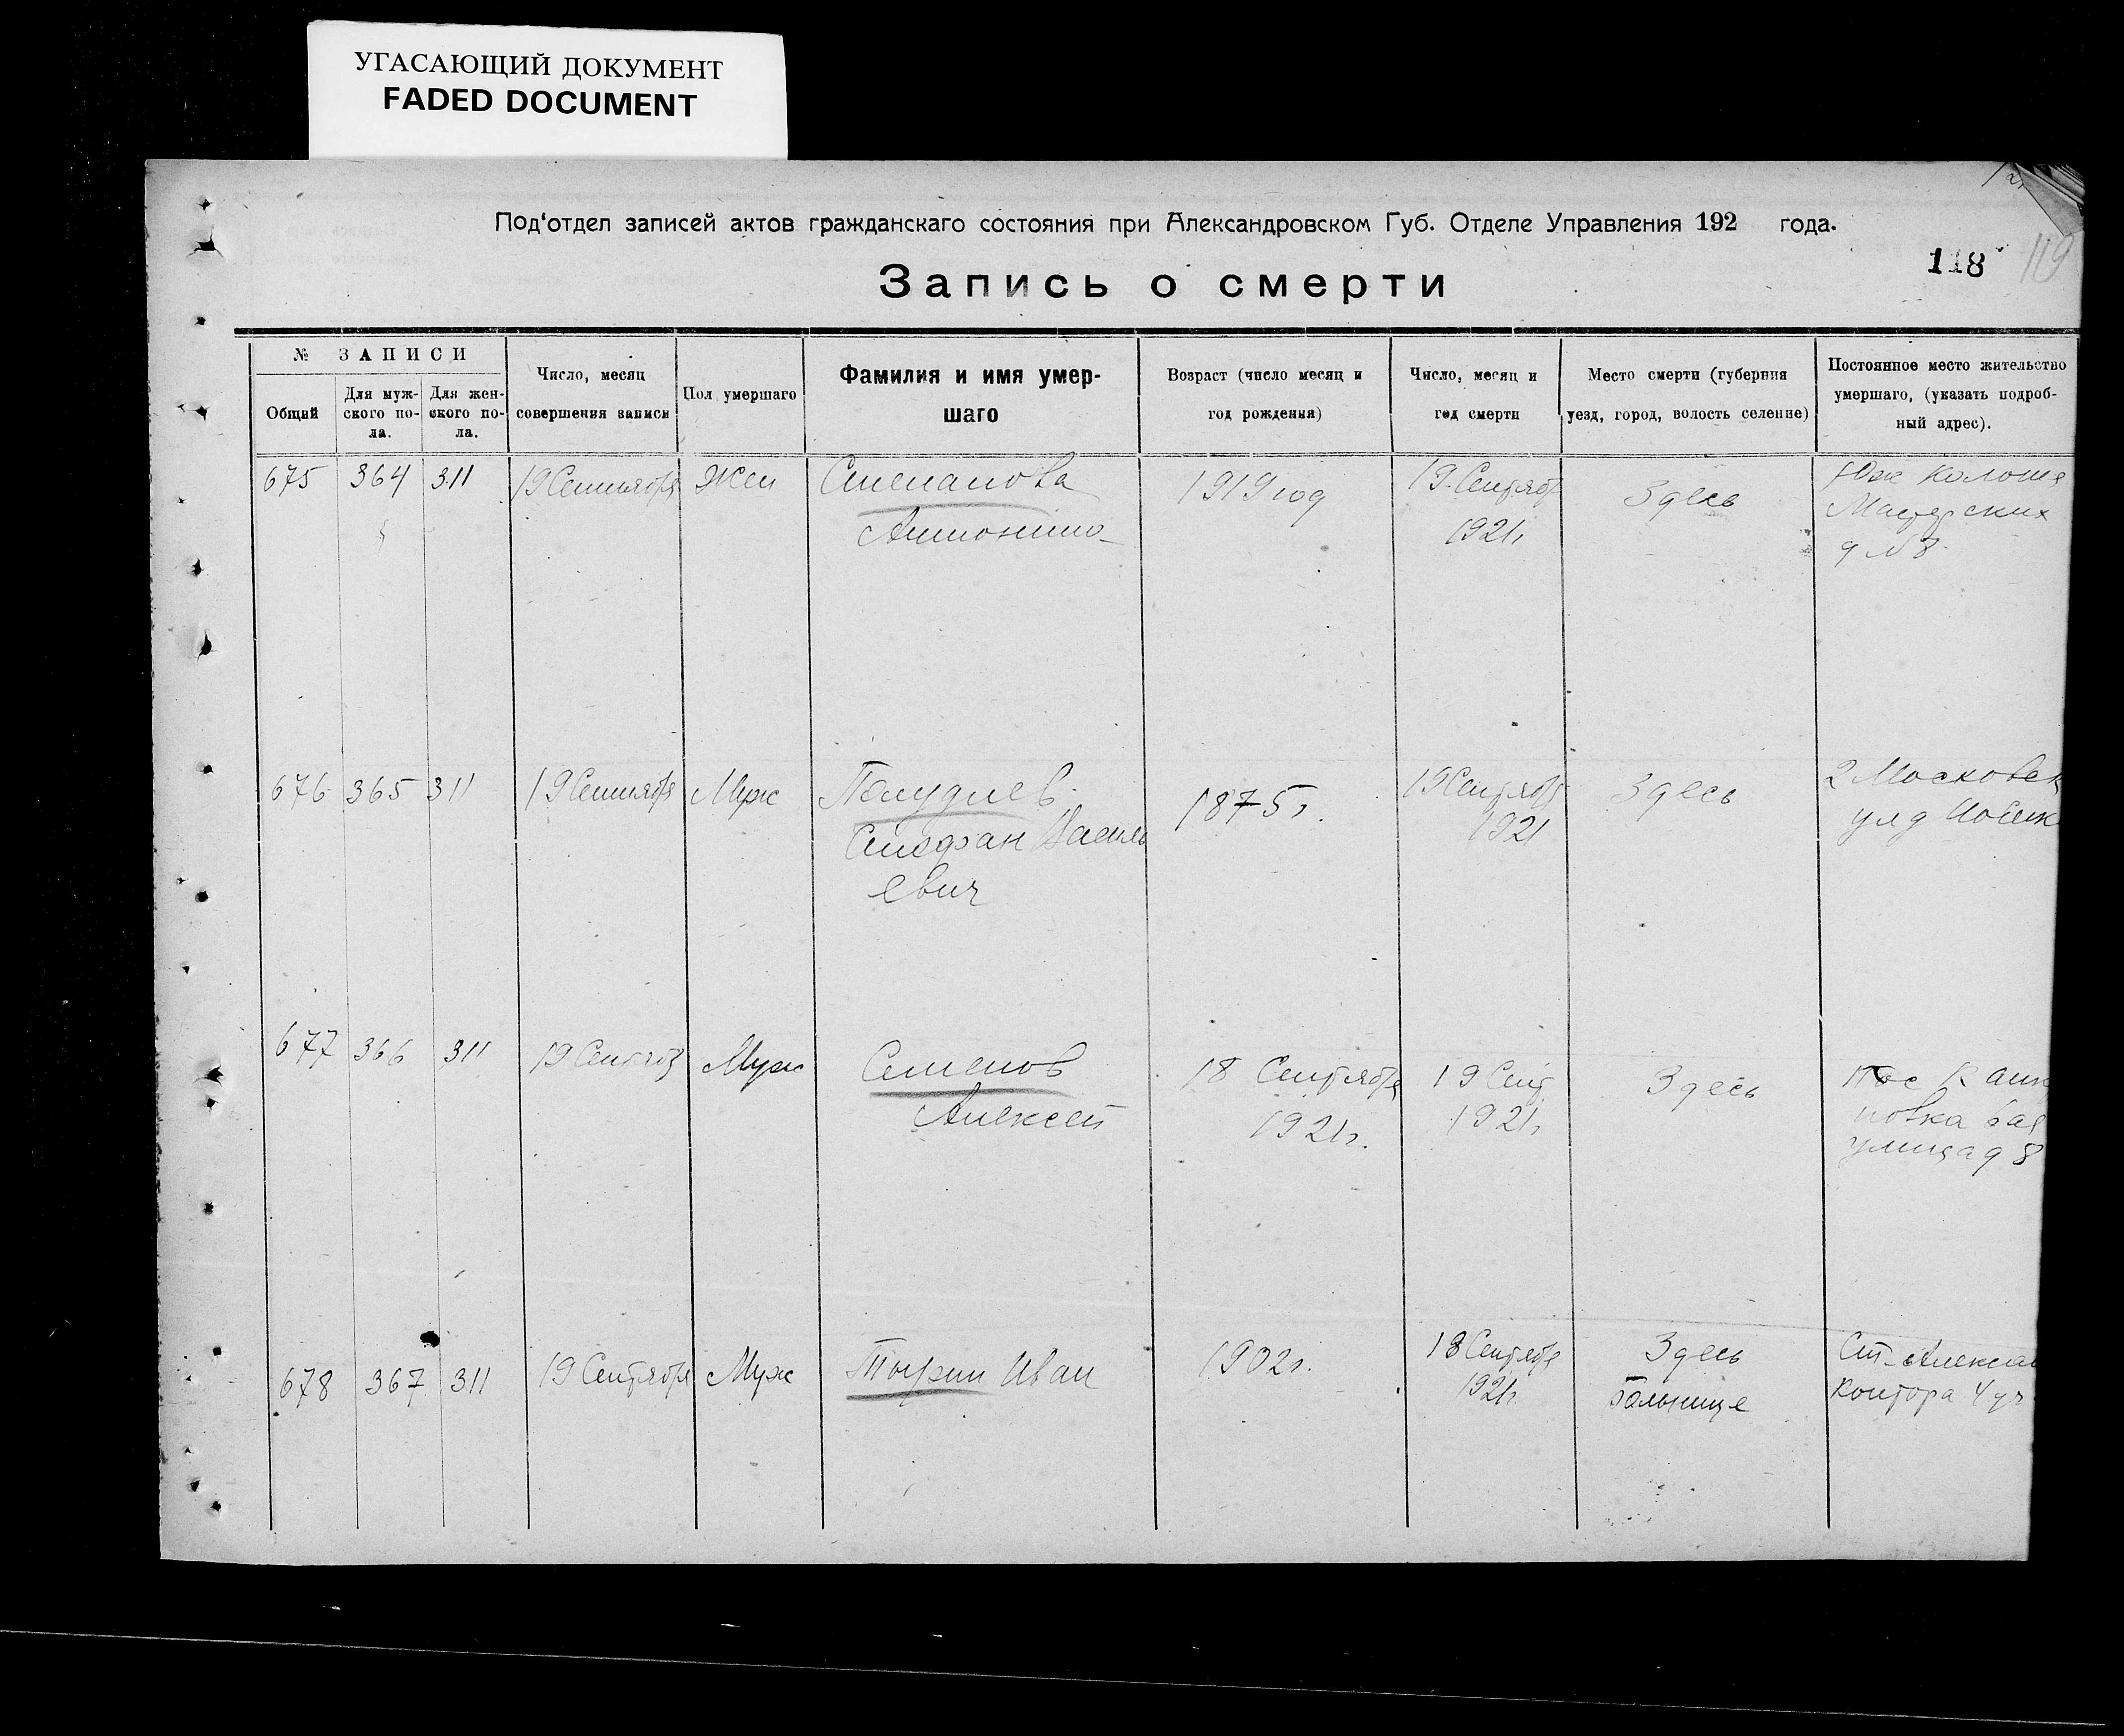 УГАСАЮЩИЙ ДОКУМЕНТ
FADED DOCUMENT
Под‘отдел записей актов гражданскаго состояния при Александровском Губ. Отделе Управления 192 года.
118 119
Запись о смерти
№ ЗАПИСИ
Общий
Для муж-
ского по-
ла.
Для жен-
ского по-
ла.
Число, месяц
совершения записи
Пол умершаго
Фамилия и имя умер-
шаго
Возраст (число месяц и
год рождения)
Число, месяц и
год смерти
Место смерти (губерния
уезд, город, волость селение)
Постоянное место жительство
умершаго, (указать подроб-
ный адрес).
675 364 311 19 Сентября Жен
Степанова
1919 год
19 Сентябр
1921г
Здесь
Юж
Мастерских
д № 8
676 365 311 19 Сентября Муж
Стефан Василь
евич
1875г.
19 Сентября
1921
Здесь
2 Московск
ул д
677 366 311 19 Сентяб Муж
Семенов
Алексей
18 Сентября
1921г.
19 Сент
1921г
Здесь
пос
улица д 8
678 367 311 19 Сентября Муж
Иван
1902г.
18 Сентября
1921г.
Здесь
больнице
Ст. Алексан
Контора 4 уч